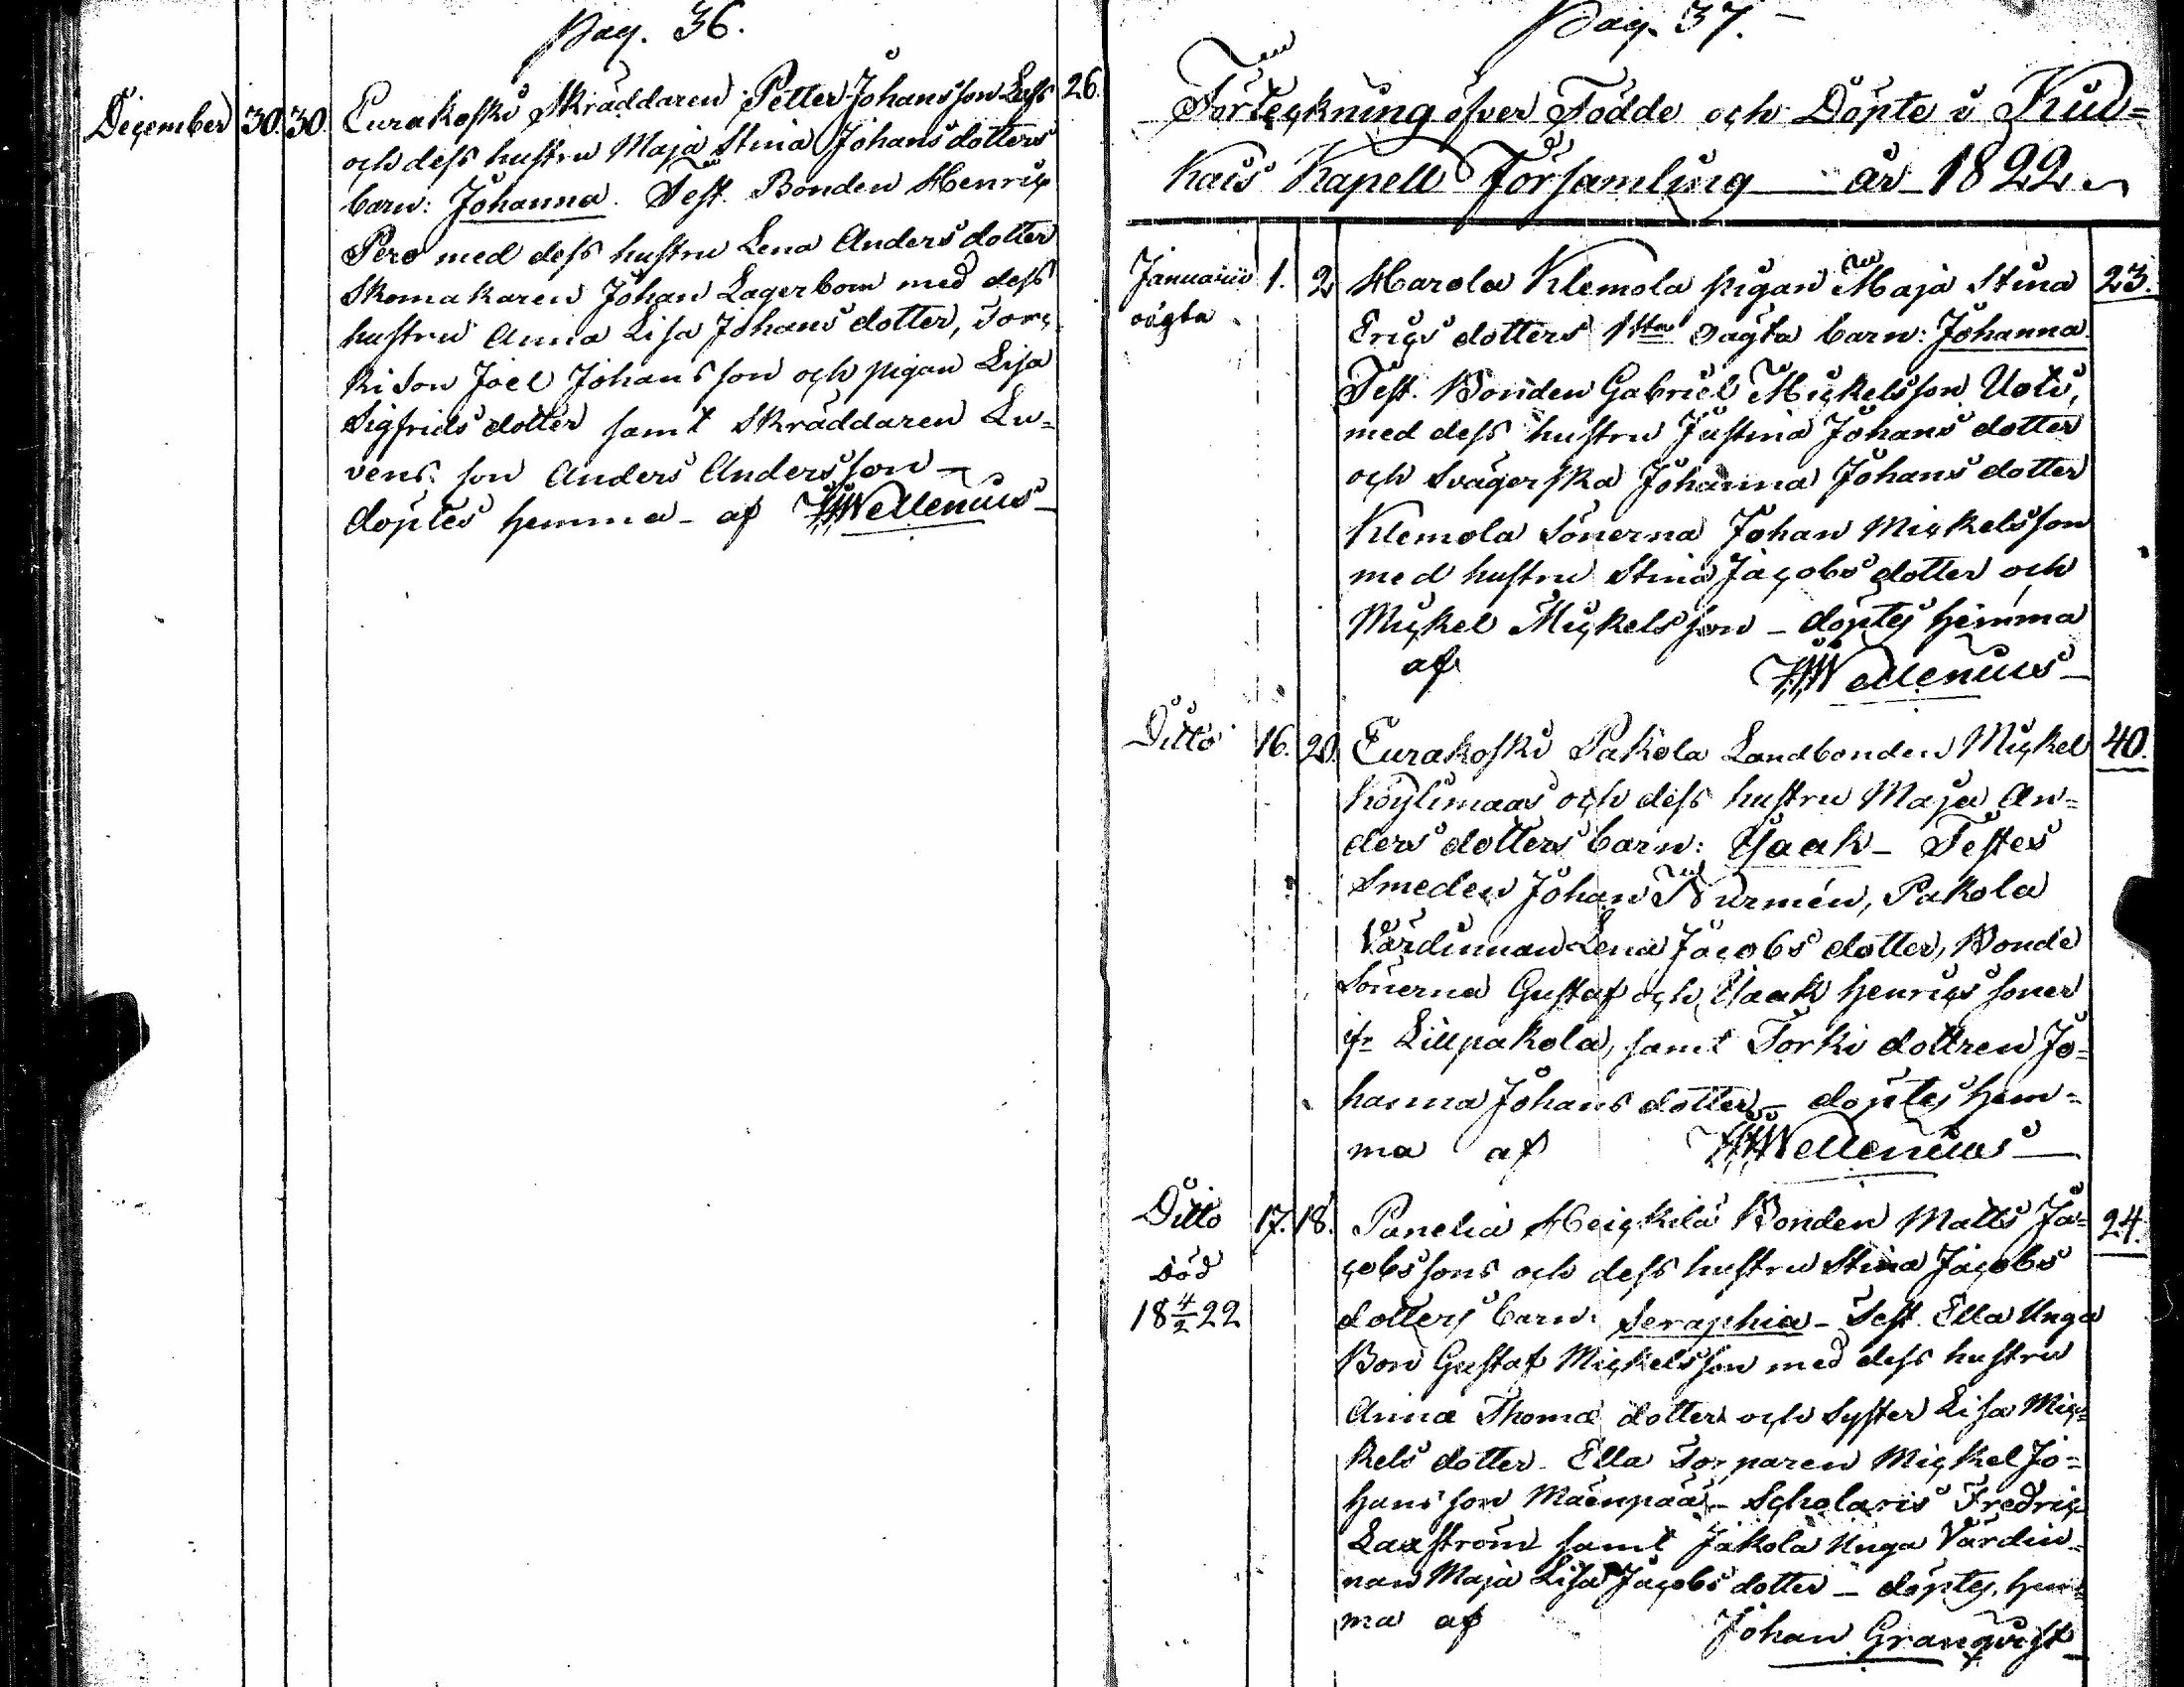 Pag. 36.
December 30. 30. Eurakoski Skräddaren Petter Johansson 26.
och dess hustru Maja Stina Johans dotters
barn: Johanna. Test. Bonden Henric
Pero med dess hustru Lena Anders dotter
Skomakaren Johan Lagerbom med dess
hustru Anna Lisa Johans dotter, Tor=
ki Son Joel Johansson och pigan Lisa
Sigfrids dotter samt Skräddaren Lu=
vens son Anders Andersson —
döptes hemma - af HWellenius
Pag. 37.
Förteckning öfver Födde och Döpte i Kiu=
kais Kapell Församling år 1822.
Januarii 1. 2 Harola Klemola pigan Maja Stina 23.
oägta Erics dotters 1sta oägta barn: Johanna.
Test. Bonden Gabriel Mickelsson Uoti,
med dess hustru Justina Johans dotter
och Svägerska Johanna Johans dotter
Klemola Sönerna Johan Mickelsson
med hustru Stina Jacobs dotter och
Mickel Mickelsson — döptes hemma
af HWellenius
Ditto 16. 20. Eurakoski Pakola Landbonden Mickel 40.
Köylimaas och dess hustru Maja An=
ders dotters barn: Isaak — Testes
Smeden Johan Nurmén, Pakola
Värdinnan Lena Jacobs dotter, Bonde
Sönerna Gustaf och Isaak Henrics söner
ifr Lillpakola, samt Torki dottren Jo=
hanna Johans dotter — döptes hem=
ma af HWellenius
Ditto 17. 18. Panelia Heickilä Bonden Matts Ja= 24.
död cobssons och dess hustru Stina Jacobs
18 4/2 22 dotters barn: Seraphia — Test. Ella Unga
Bon Gustaf Mickelsson med dess hustru
Anna Thomæ dotter och Syster Lisa Mic=
kels dotter — Ella Torparen Mickel Jo=
hansson Mäenpää — Scholaris Fredric
Laxström samt Jakola Unga Värdin=
nan Maja Lisa Jacobs dotter — döptes hem=
ma af Johan Granqvist